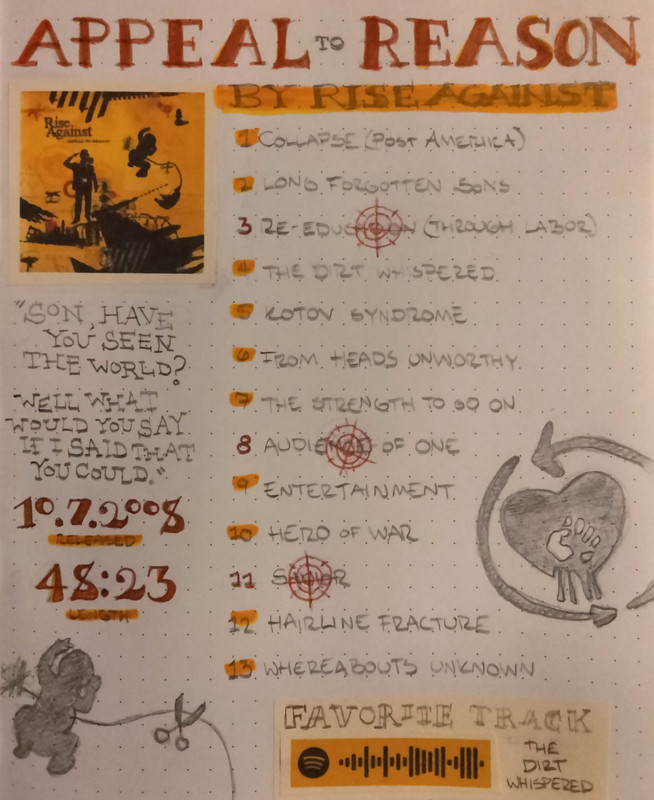 APPEAL TO REASON
BY RISE AGAINST
Rise Against
1 COLLAPSE (POST AMERIKA)
2 LONG FORGOTTEN SONS
3 RE-EDUCATION (THROUGH LABOR)
4 THE DIRT WHISPERED
5 KOTOV SYNDROME
6 FROM HEADS UNWORTHY
7 THE STRENGTH TO GO ON
8 AUDIENCE OF ONE
9 ENTERTAINMENT
10 HERO OF WAR
11 SAVIOR
12 HAIRLINE FRACTURE
13 WHEREABOUTS UNKNOWN
"SON, HAVE
YOU SEEN
THE WORLD?
WELL WHAT
WOULD YOU SAY
IF I SAID THAT
YOU COULD."
10.7.2008
RELEASED
48:23
LENGTH
FAVORITE TRACK
THE
DIRT
WHISPERED